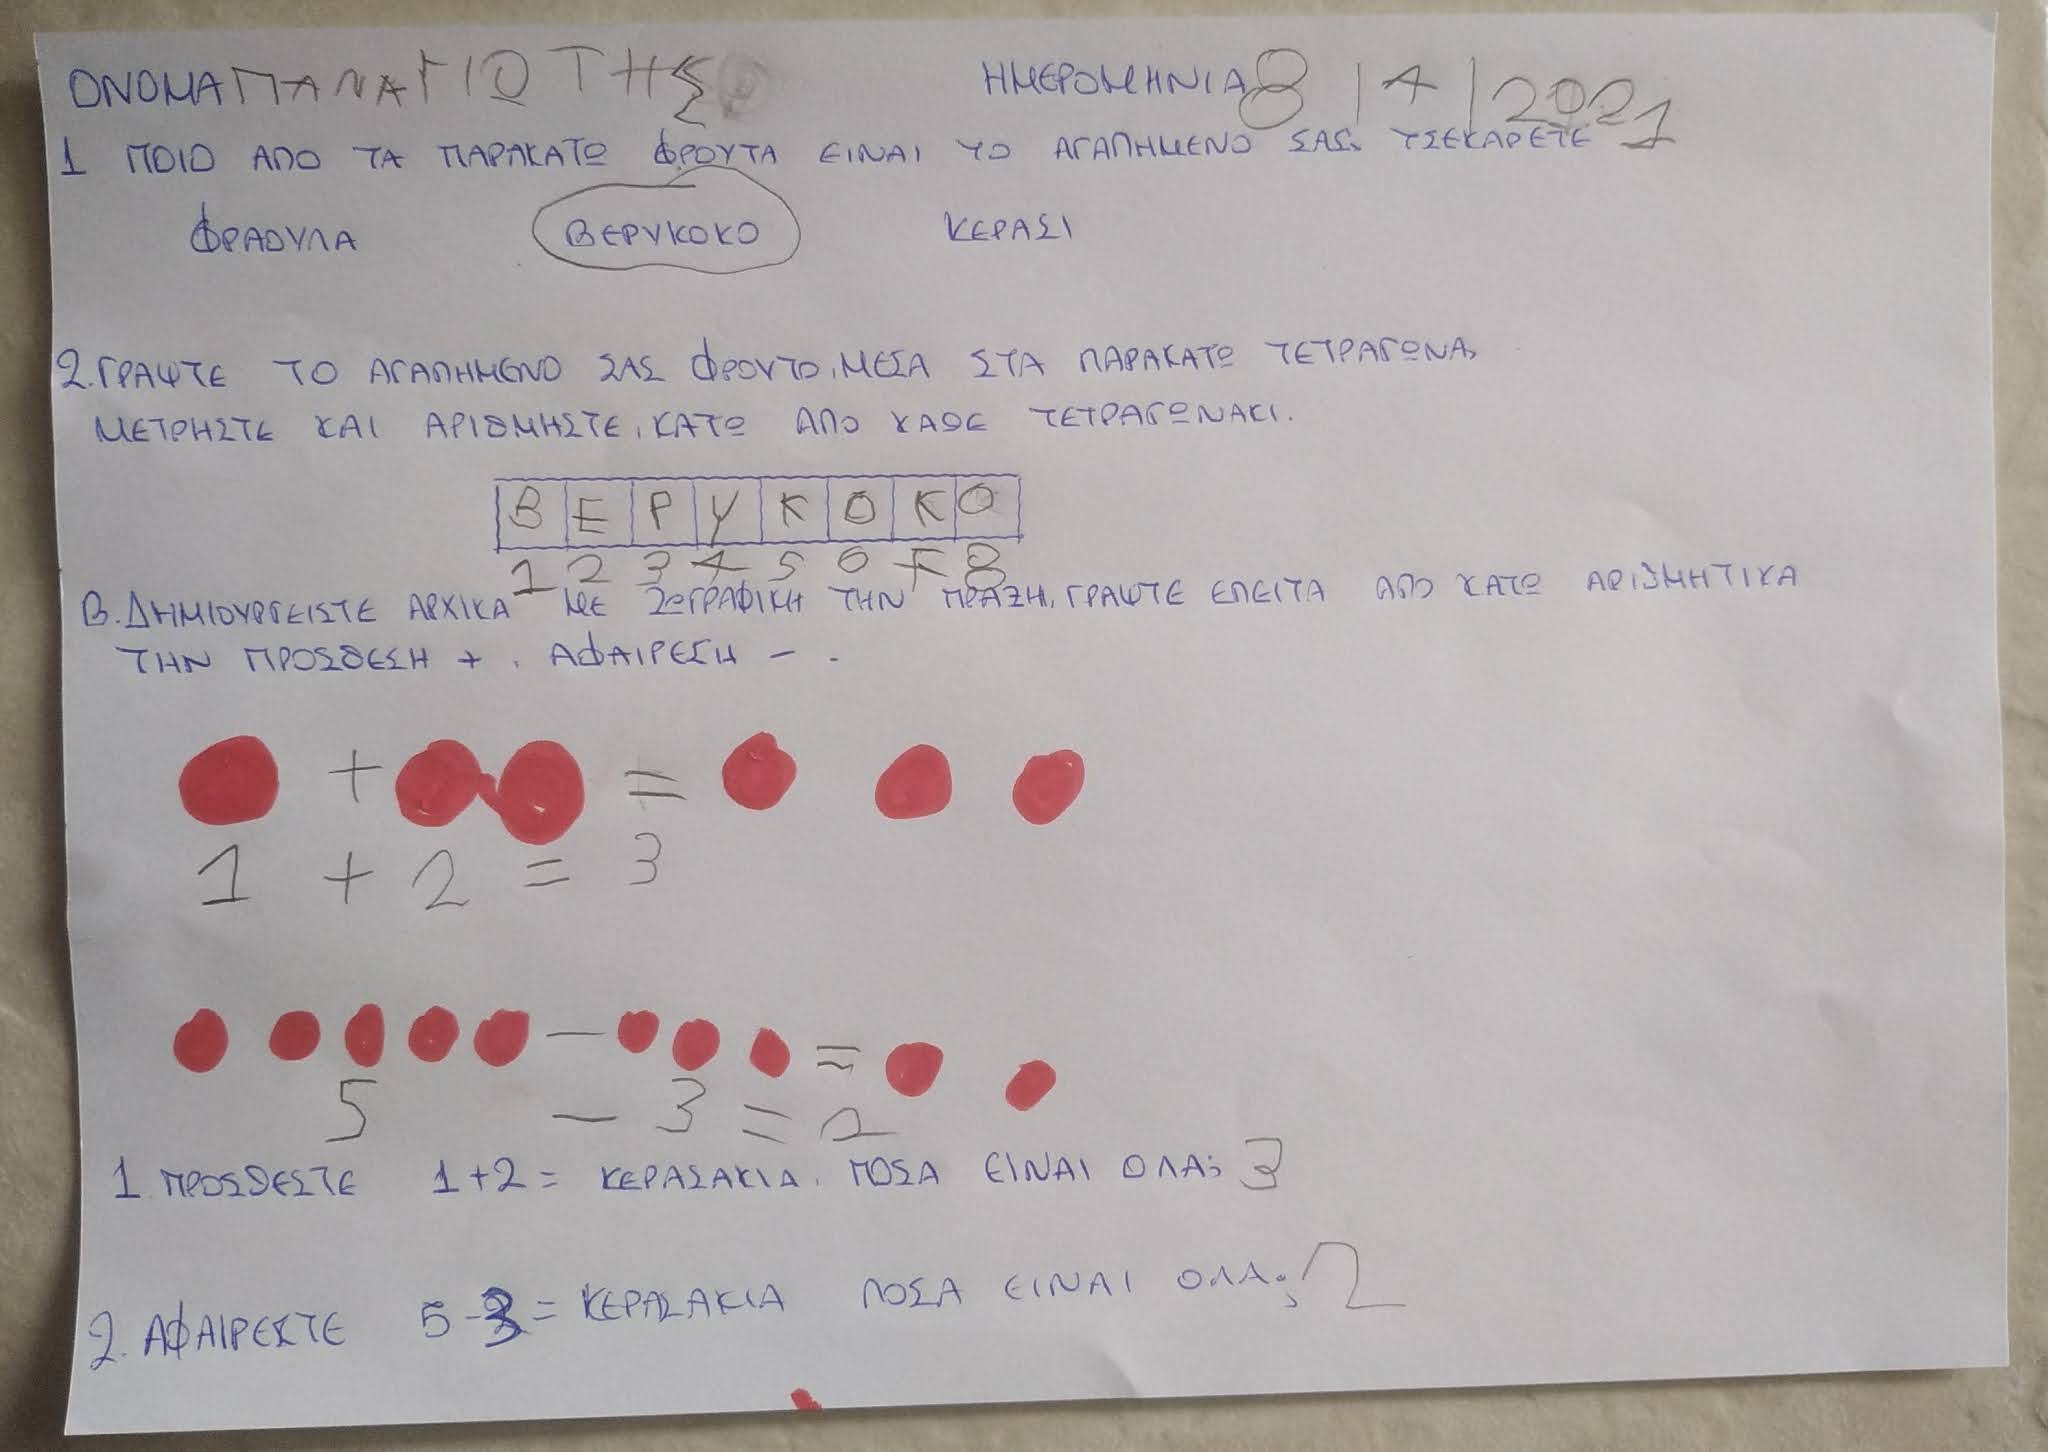 ΟΝΟΜΑ ΠΑΝΑΓΙΩΤΗΣ ΗΜΕΡΟΜΗΝΙΑ 8/4/2021
1 ΠΟΙΟ ΑΠΟ ΤΑ ΠΑΡΑΚΑΤΩ ΦΡΟΥΤΑ ΕΙΝΑΙ ΤΟ ΑΓΑΠΗΜΕΝΟ ΣΑΣ. ΤΣΕΚΑΡΕΤΕ
ΦΡΑΟΥΛΑ ΒΕΡΥΚΟΚΟ ΚΕΡΑΣΙ
2. ΓΡΑΨΤΕ ΤΟ ΑΓΑΠΗΜΕΝΟ ΣΑΣ ΦΡΟΥΤΟ, ΜΕΣΑ ΣΤΑ ΠΑΡΑΚΑΤΩ ΤΕΤΡΑΓΩΝΑ,
ΜΕΤΡΗΣΤΕ ΚΑΙ ΑΡΙΘΜΗΣΤΕ, ΚΑΤΩ ΑΠΟ ΚΑΘΕ ΤΕΤΡΑΓΩΝΑΚΙ.
Β Ε Ρ Υ Κ Ο Κ Ο
1 2 3 4 5 6 7 8
Β. ΔΗΜΙΟΥΡΓΕΙΣΤΕ ΑΡΧΙΚΑ ΜΕ ΖΩΓΡΑΦΙΚΗ ΤΗΝ ΠΡΑΞΗ, ΓΡΑΨΤΕ ΕΠΕΙΤΑ ΑΠΟ ΚΑΤΩ ΑΡΙΘΜΗΤΙΚΑ
ΤΗΝ ΠΡΟΣΘΕΣΗ + . ΑΦΑΙΡΕΣΗ - .
+ =
1 + 2 = 3
- =
5 - 3 = 2
1. ΠΡΟΣΘΕΣΤΕ 1+2= ΚΕΡΑΣΑΚΙΑ. ΠΟΣΑ ΕΙΝΑΙ ΟΛΑ; 3
2. ΑΦΑΙΡΕΣΤΕ 5-3= ΚΕΡΑΣΑΚΙΑ ΠΟΣΑ ΕΙΝΑΙ ΟΛΑ; 2